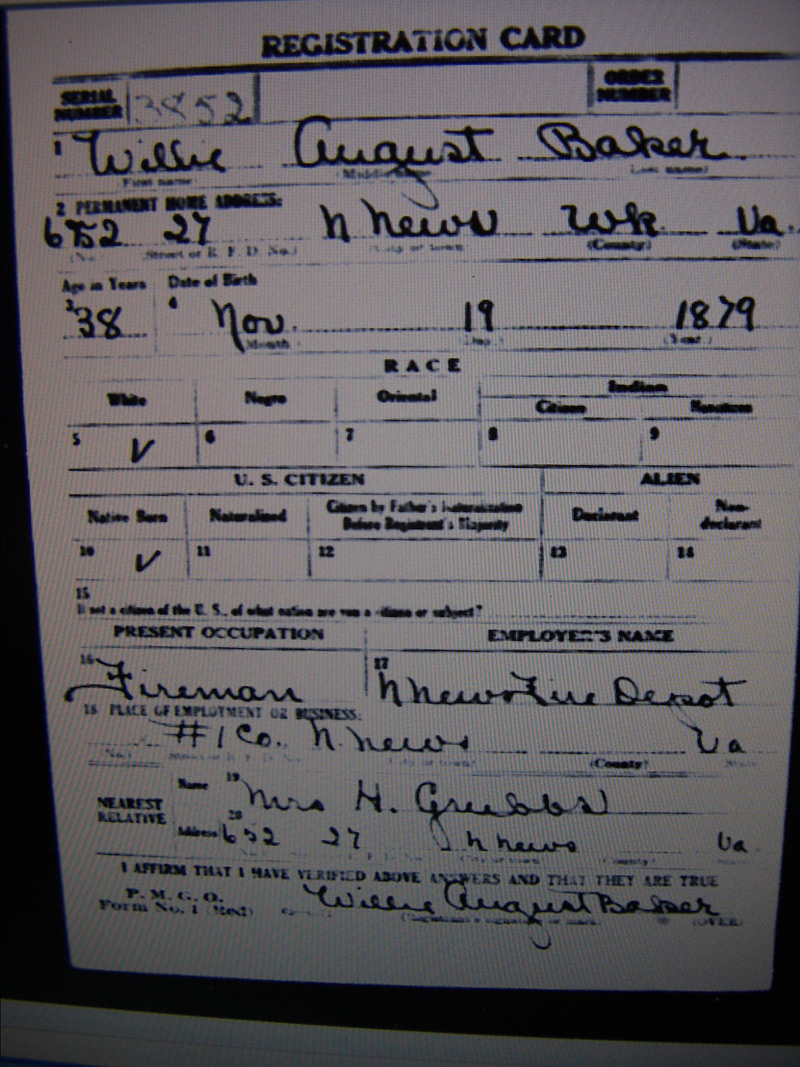 REGISTRATION CARD
SERIAL NUMBER 3852 ORDER NUMBER
1 Willie August Baker
First name Middle name Last name)
2 PERMANENT HOME ADDRESS:
652 27 N News Wk Va.
(No. Street or R. F. D. No.) (City or town) (County) (State)
Age in Years Date of Birth
3 38 4 Nov. 19 1879
(Month (Day.) (Year.)
RACE
White Negro Oriental Indian
Citizen Noncitizen
5 V 6 7 8 9
U. S. CITIZEN ALIEN
Native Born Naturalized Citizen by Father's Naturalization Before Registrant's Majority Declarant Non-declarant
10 V 11 12 13 14
15
If not a citizen of the U. S., of what nation are you a citizen or subject?
PRESENT OCCUPATION EMPLOYER'S NAME
16 Fireman 17 N News Fire Depot
18 PLACE OF EMPLOYMENT OR BUSINESS:
#1 Co. N. News Va
(No.) Street or R. F. D. No. (City or town) (County) State
NEAREST RELATIVE
Name 19 Mrs H. Grubbs
20
Address 652 27 N News Va
(City or town) (County)
I AFFIRM THAT I HAVE VERIFIED ABOVE ANSWERS AND THAT THEY ARE TRUE
P. M. G. O.
Form No. 1 (Red) Willie August Baker
(Registrant's signature or mark) (OVER)